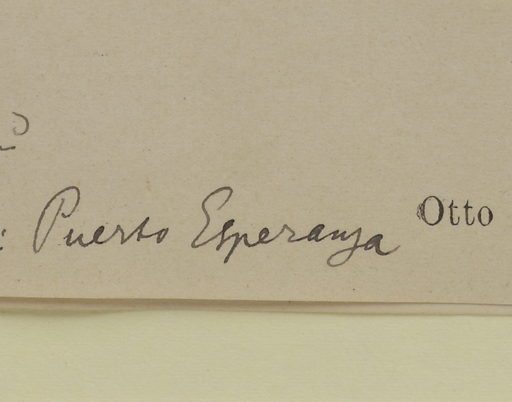 : Puerto Esperanza Otto